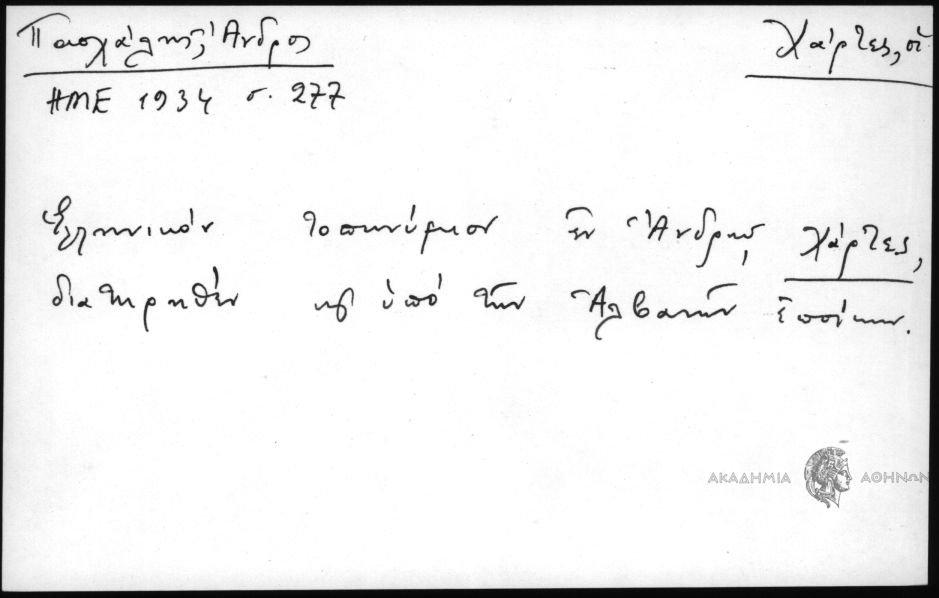 Πασχάλης, Ἄνδρος
Χάρτες, οἱ
ΗΜΕ 1934 σ. 277
Ἑλληνικόν τοπωνύμιον ἐν Ἄνδρῳ, Χάρτες,
διατηρηθέν καὶ ὑπό τῶν Ἀλβανῶν ἐποίκων.
ΑΚΑΔΗΜΙΑ ΑΘΗΝΩΝ